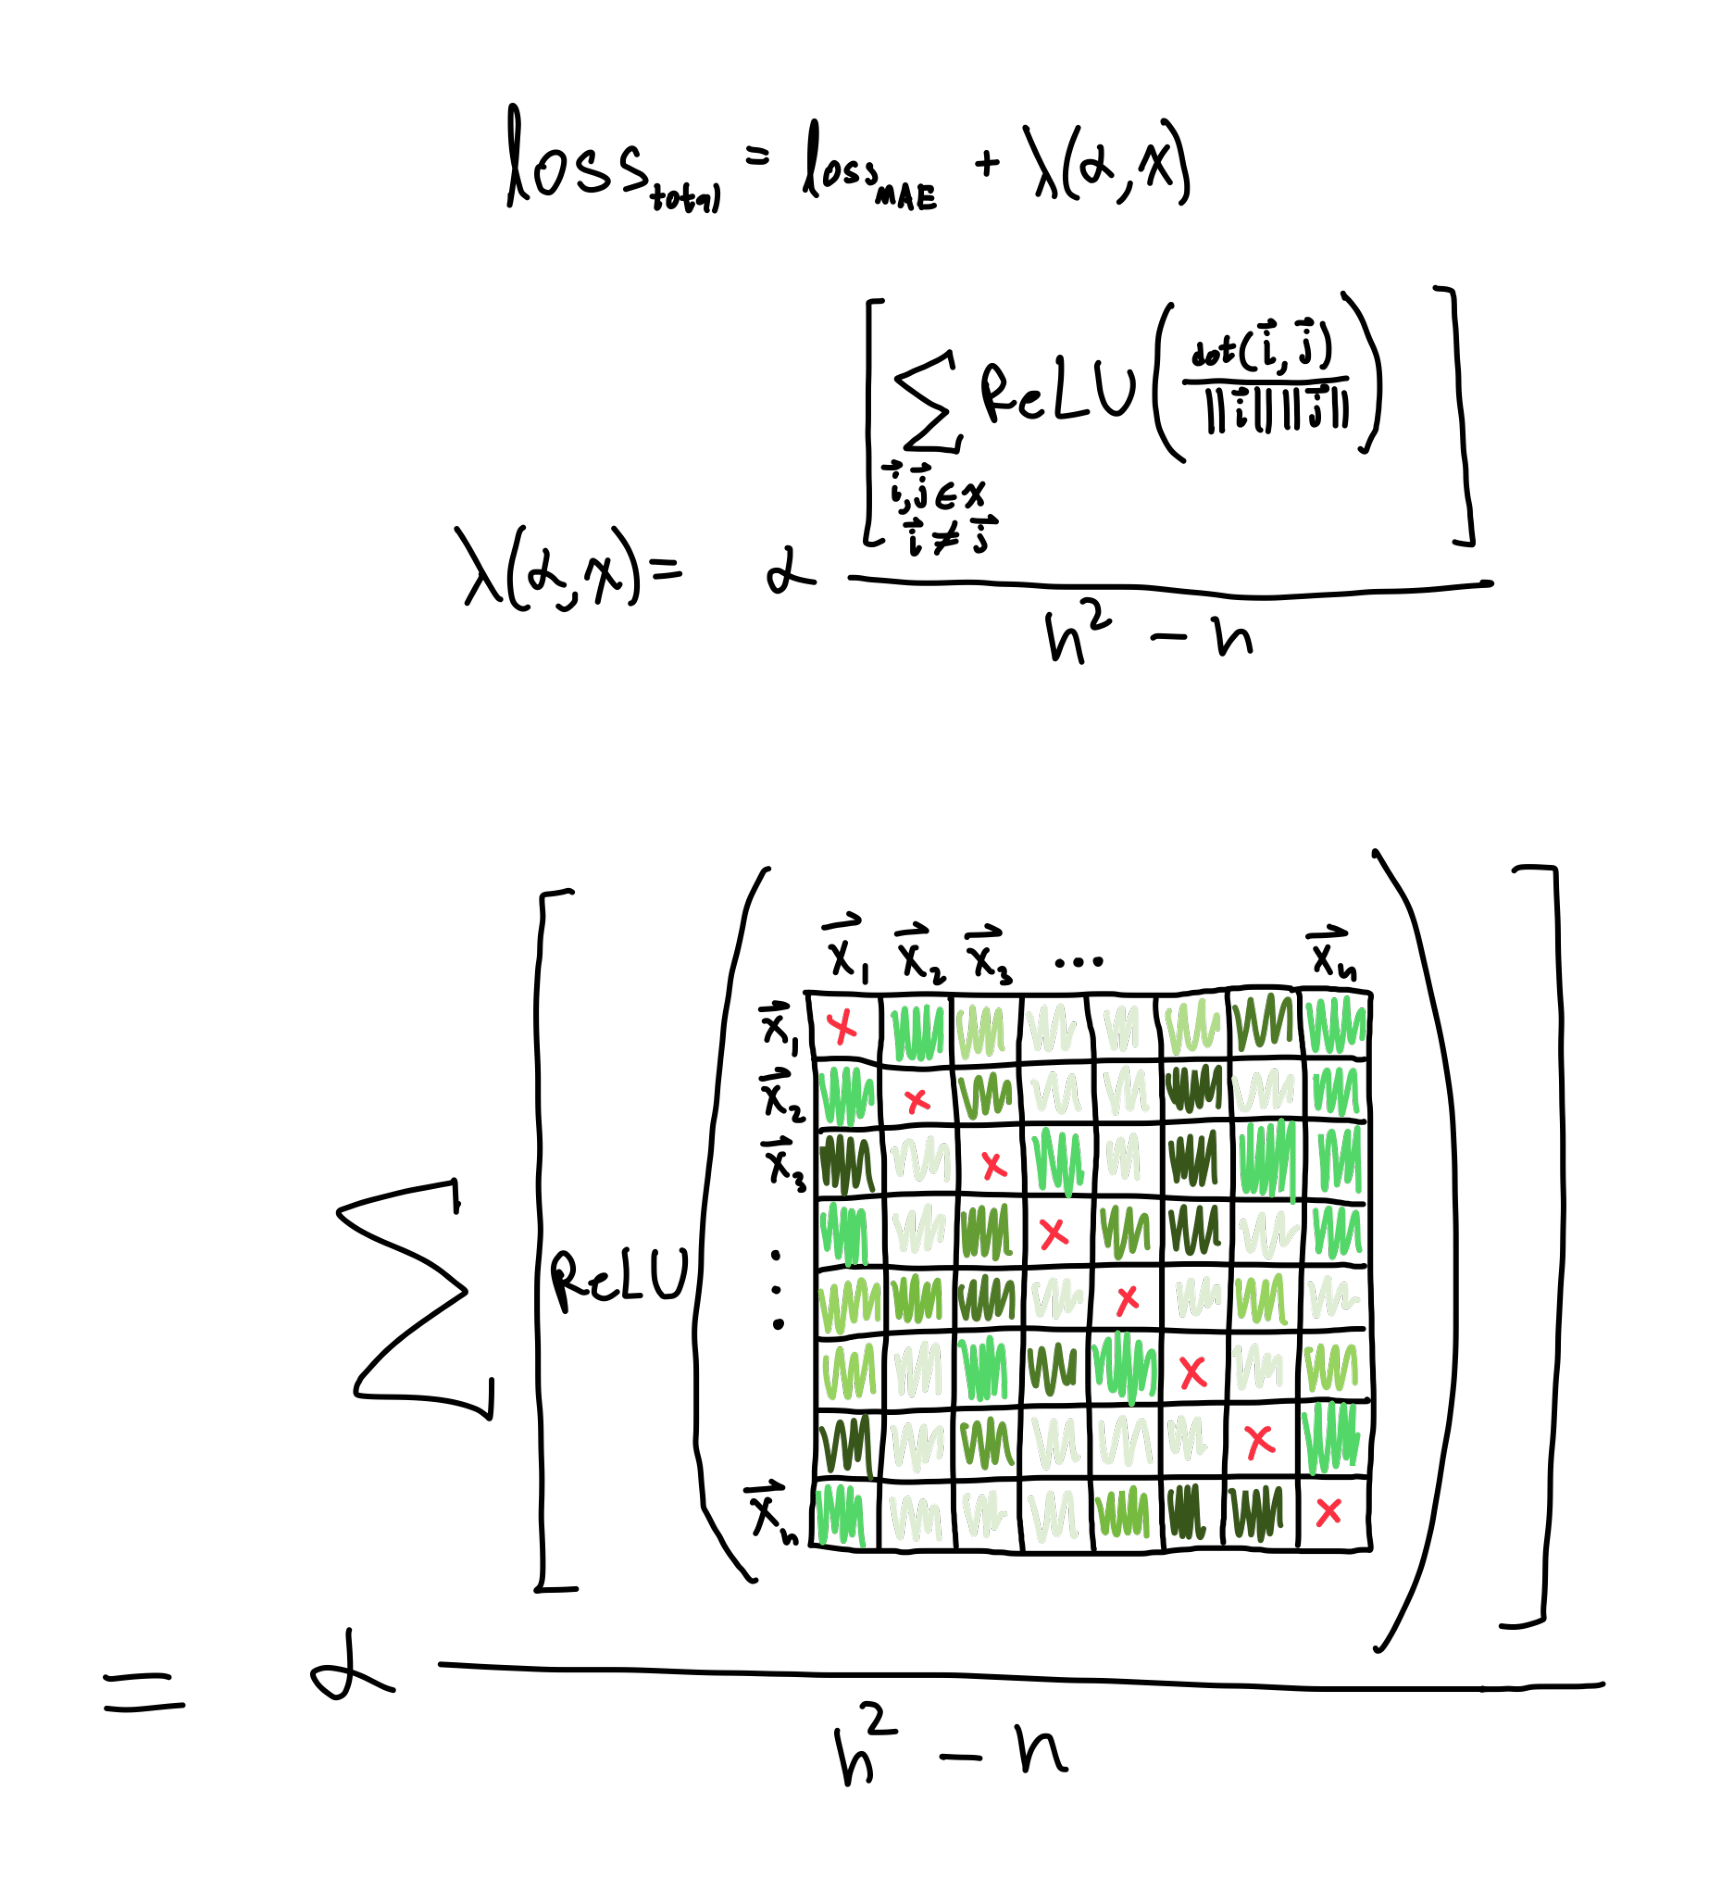 loss_total = loss_MAE + λ(α,x)
λ(α,x) = α [∑_{i⃗,j⃗∈x, i⃗≠j⃗} ReLU(dot(i⃗,j⃗) / ||i⃗|| ||j⃗||)] / n² - n
x⃗₁ x⃗₂ x⃗₃ ... x⃗ₙ
x⃗₁
x⃗₂
x⃗₃
⋮
∑ [ReLU( )]
x⃗ₙ
= α
n² - n